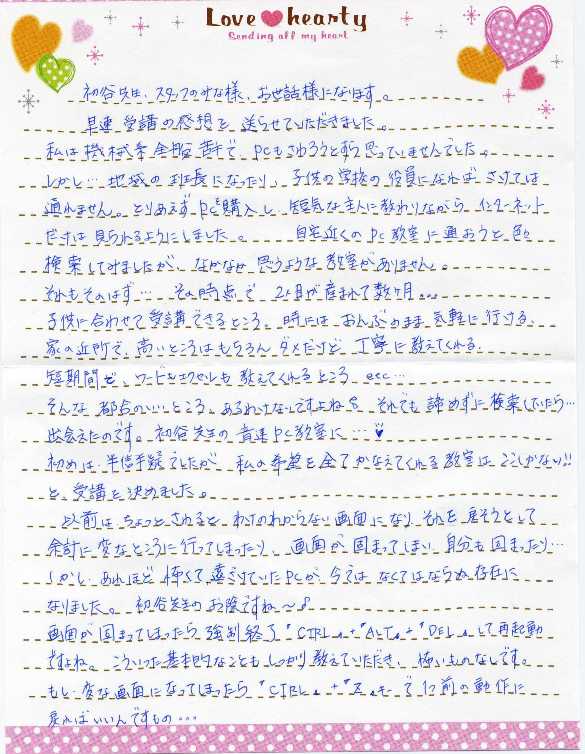 Love hearty
Sending all my heart
初谷先生、スタッフのみな様、お世話様になります。
早速 受講の感想を 送らせていただきました。
私は機械系全般苦手で、PCもさわろうとすら思っていませんでした。
しかし…地域の班長になったり、子供の学校の役員になれば さけては
通れません。とりあえずPCを購入し、短気な主人に教わりながら インターネット
だけは見られるようにしました。 自宅近くのPC教室に通おうと 色々
検索してみましたが、なかなか思うような教室がありません。
それもそのはず… その時点で 2人目が産まれて数ヶ月。。。
子供に合わせて受講できるところ。時にはおんぶのまま気軽に行ける、
家の近所で、高いところはもちろんダメだけど 丁寧に教えてくれる、
短期間で、ワードもエクセルも教えてくれるところ etc…
そんな都合のいいところ、あるわけないですよね それでも諦めずに検索していたら…
出会えたのです。初谷先生の 音速PC教室に…
初めは、半信半疑でしたが、私の希望を全てかなえてくれる教室は ここしかない!!
と、受講を決めました。
以前は、ちょっとさわると、わけのわからない画面になり それを戻そうとして
余計に変なところに行ってしまったり、画面が固まってしまい、自分も固まったり…
しかし、あれほど怖くて遠ざけていたPCが、今では なくてはならぬ存在に
なりました。初谷先生のお陰ですね～♪
画面が固まってしまったら 強制終了 "CTRL"+"ALT"+"DEL"して再起動
ですよね。こういった基本的なことも しっかり教えていただき、怖いものなしです。
もし、変な画面になってしまったら "CTRL"+"Z"キーで1つ前の動作に
戻ればいいんですもの…